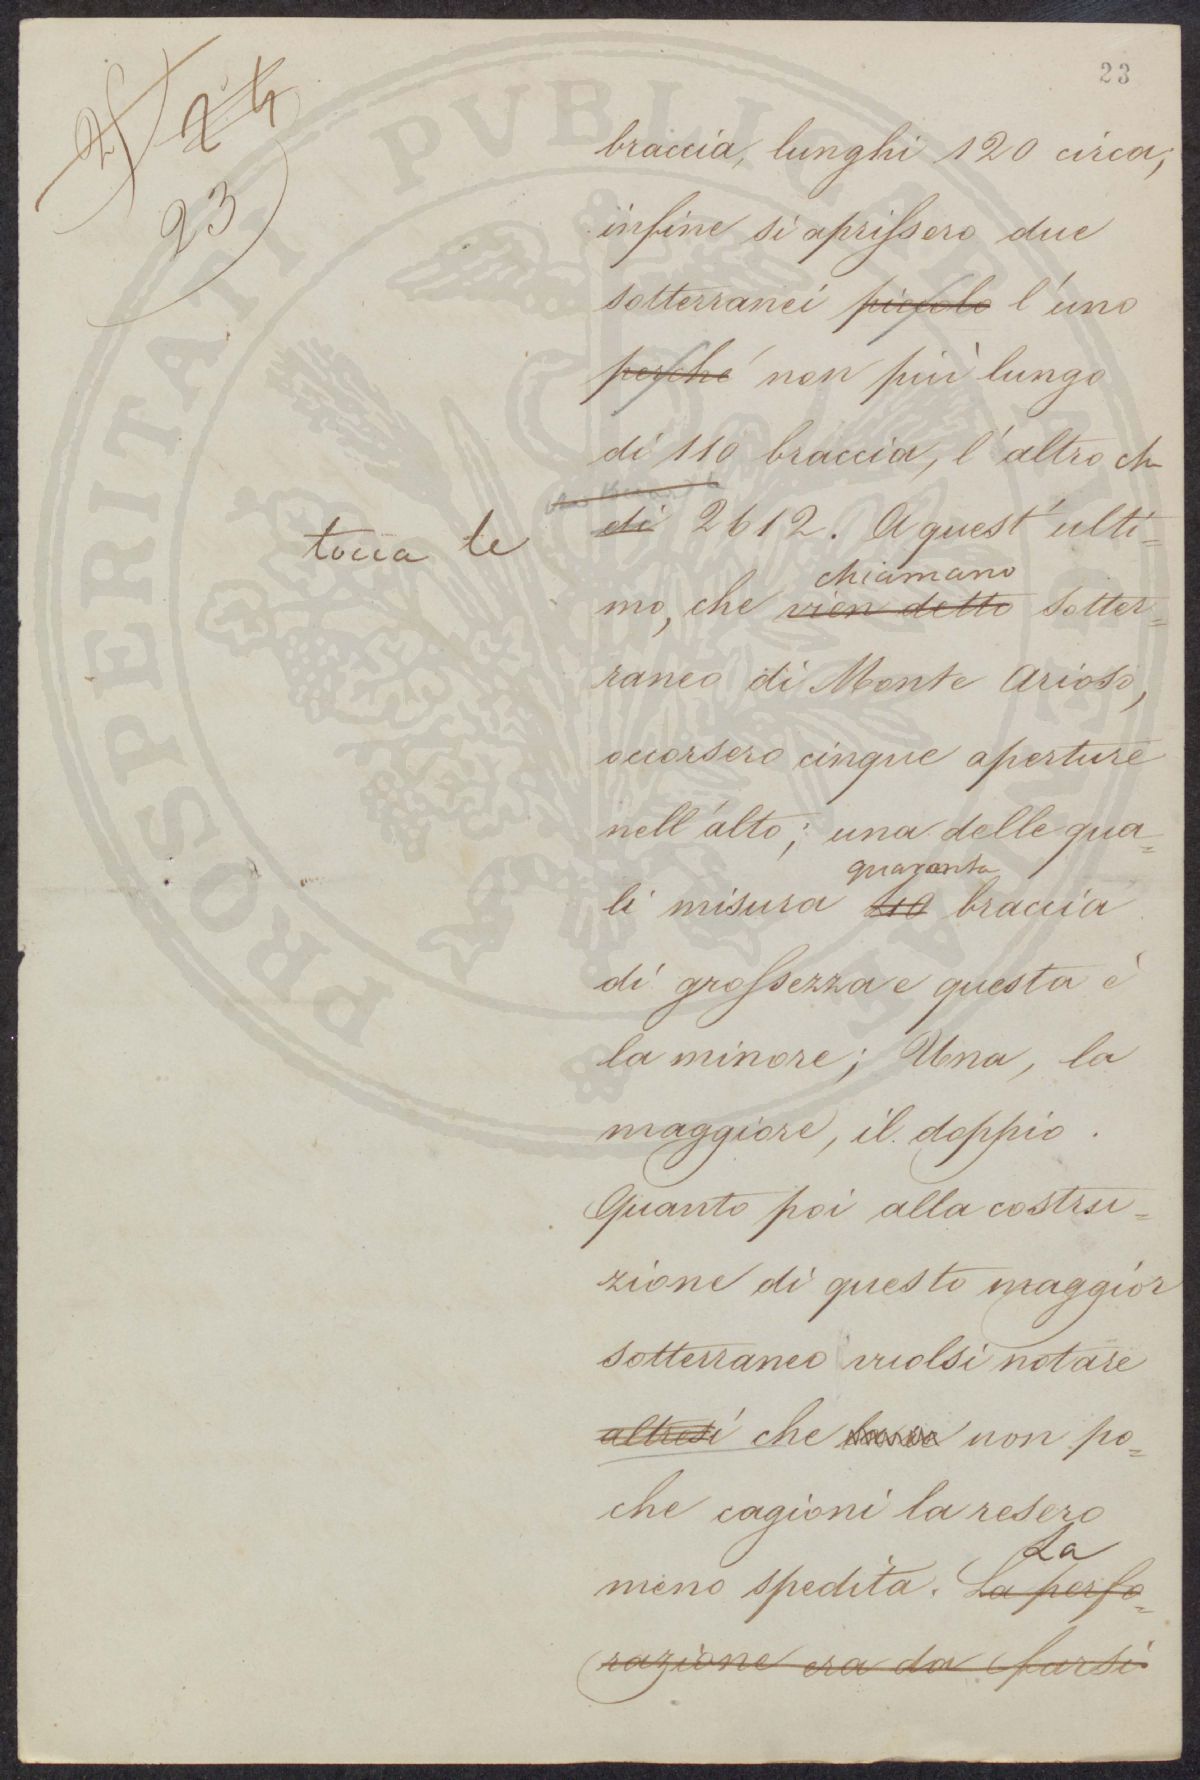 23
24
23
braccia, lunghi 120 circa;
infine si aprissero due
sotterranei piccolo l'uno
perché non più lungo
di 110 braccia, l'altro ch
tocca le
di 2612. A quest'ulti=
chiamano
mo, che vien detto sotter=
raneo di Monte Arioso,
occorsero cinque aperture
nell'alto; una delle qua=
quaranta
li misura 40 braccia
di grossezza e questa è
la minore; Una, la
maggiore, il doppio.
Quanto poi alla costru=
zione di questo maggior
sotterraneo vuolsi notare
altresì che non po=
che cagioni la resero
La
meno spedita. La perfo=
razione era da farsi
PROSPERITATI PVBLICAE